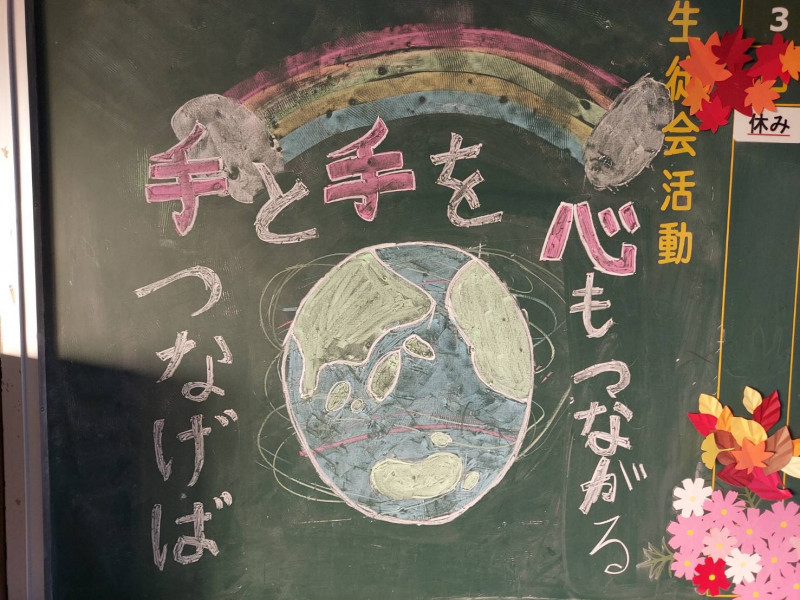 手と手を
つなげば
心もつながる
生徒会活動
3
休み